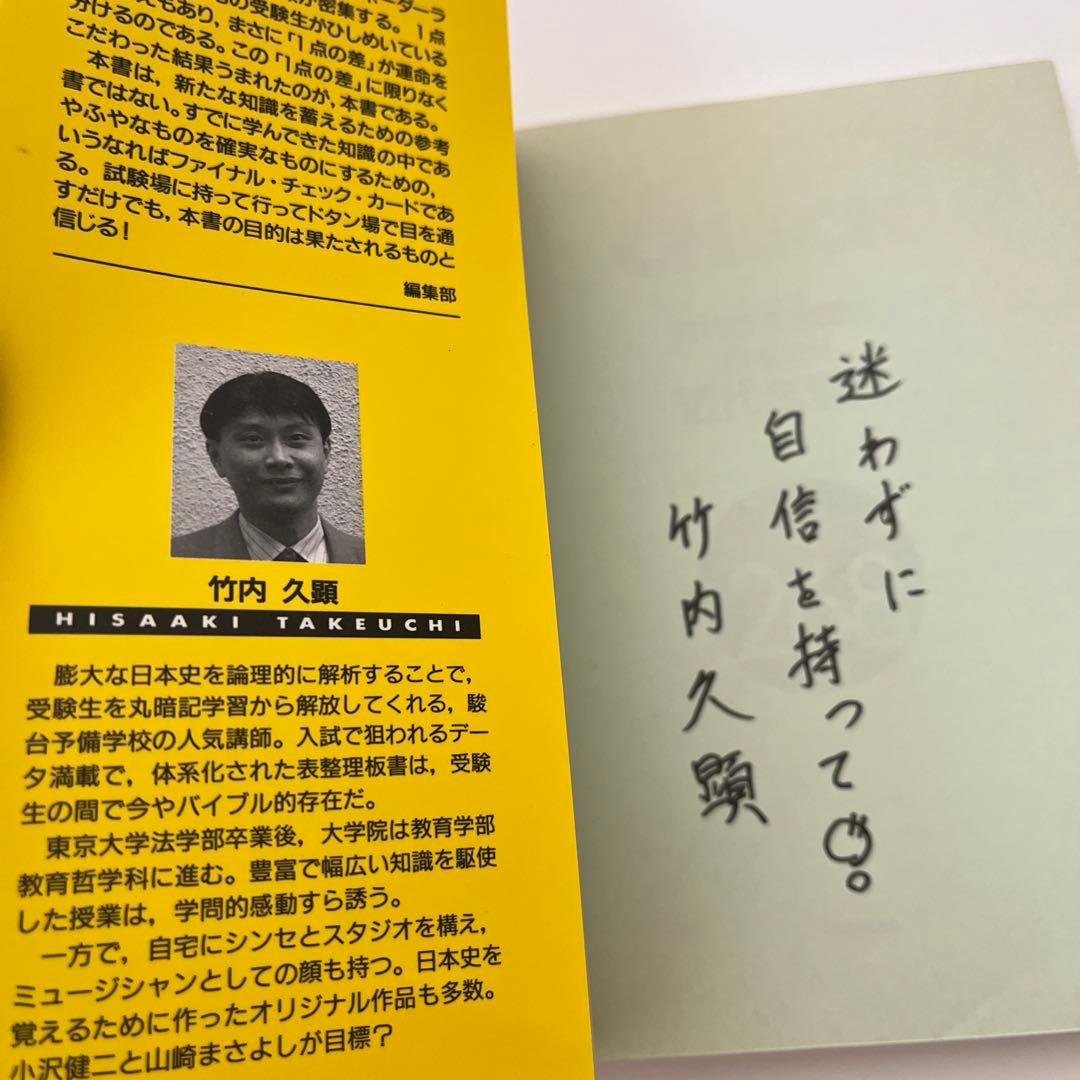 密集する。1点
の受験生がひしめいている
もあり,まさに「1点の差」が運命を
分けるのである。この「1点の差」に限りなく
こだわった結果うまれたのが,本書である。
本書は,新たな知識を蓄えるための参考
書ではない。すでに学んできた知識の中であ
やふやなものを確実なものにするための,
いうなればファイナル・チェック・カードであ
る。試験場に持って行ってドタン場で目を通
すだけでも,本書の目的は果たされるものと
信じる!
編集部
竹内 久顕
HISAAKI TAKEUCHI
膨大な日本史を論理的に解析することで,
受験生を丸暗記学習から解放してくれる,駿
台予備学校の人気講師。入試で狙われるデー
タ満載で,体系化された表整理板書は,受験
生の間で今やバイブル的存在だ。
東京大学法学部卒業後,大学院は教育学部
教育哲学科に進む。豊富で幅広い知識を駆使
した授業は,学問的感動すら誘う。
一方で,自宅にシンセとスタジオを構え,
ミュージシャンとしての顔も持つ。日本史を
覚えるために作ったオリジナル作品も多数。
小沢健二と山崎まさよしが目標?
迷わずに
自信を持って
竹内久顕